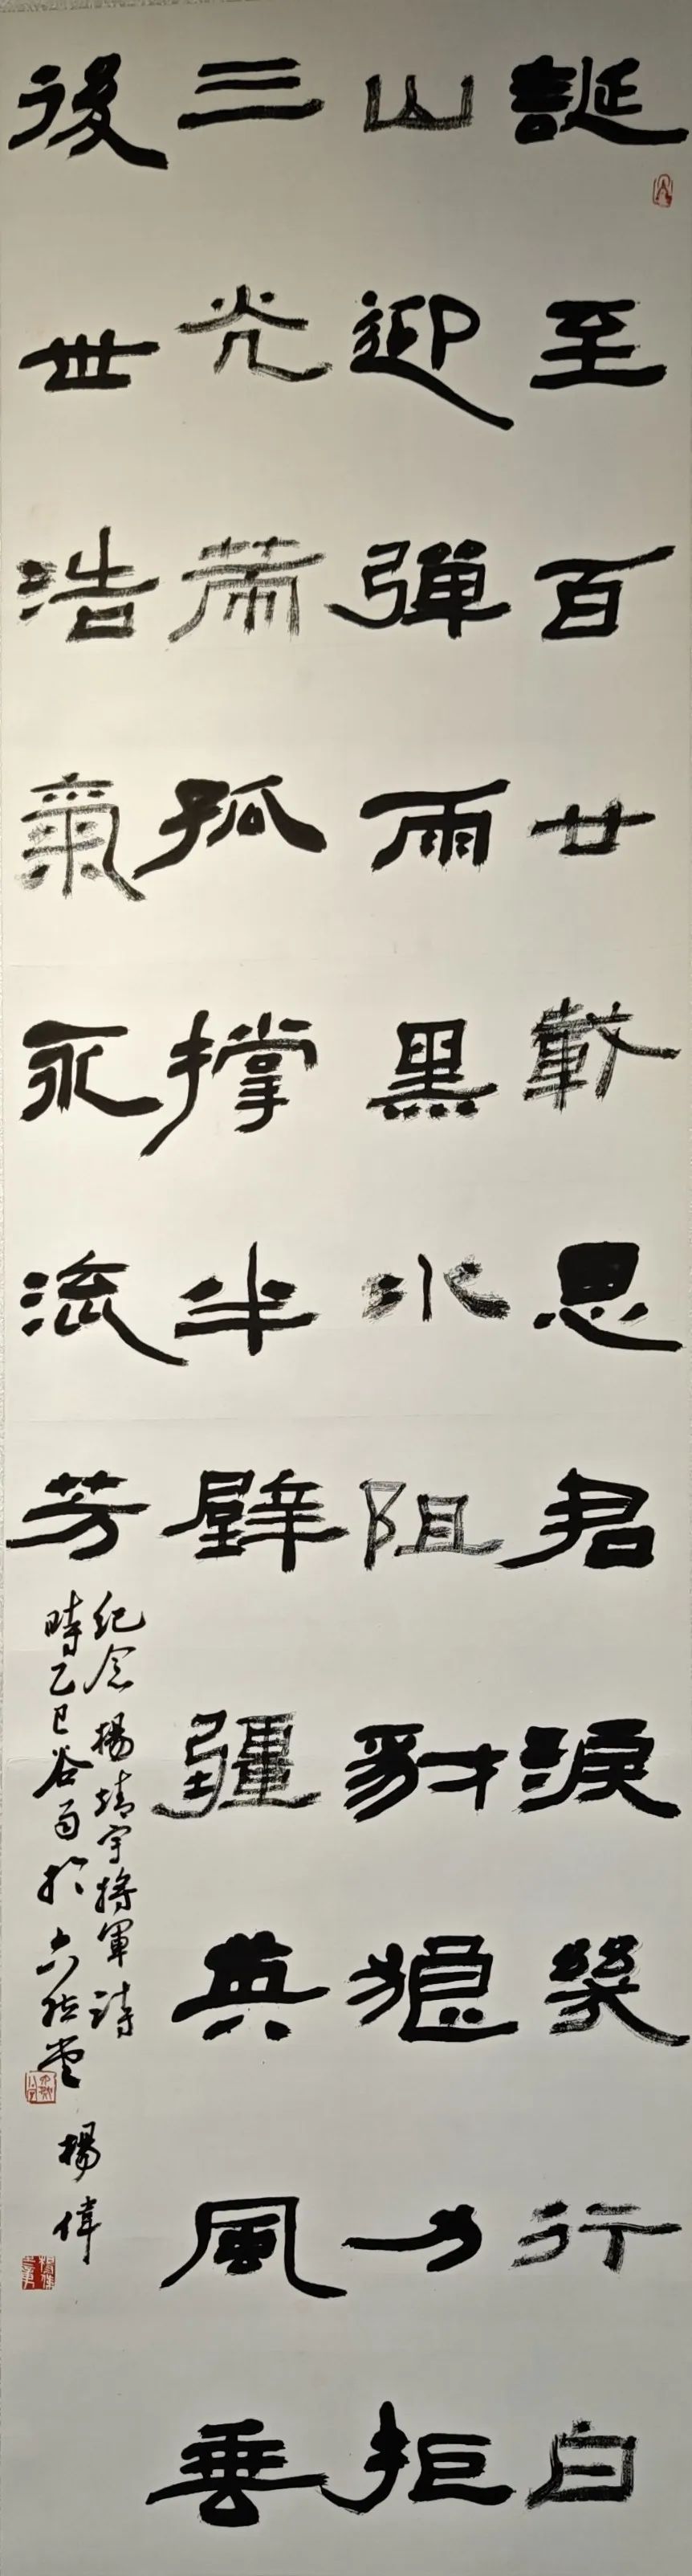 誕至百廿載思君淚幾行白
山迎彈雨黑水阻豺狼力拒
三光孤撐半壁疆英風垂
後世浩氣永流芳
紀念楊靖宇將軍詩
時乙巳谷雨於六然堂 楊偉